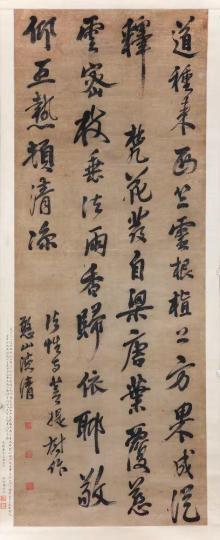 道種来西竺雲根植上方果成從
釋梵花發自梁唐葉覆慈
雲密枝垂法雨香歸依聊敬
仰五熱頓清涼
法性寺菩提樹作
憨山德清